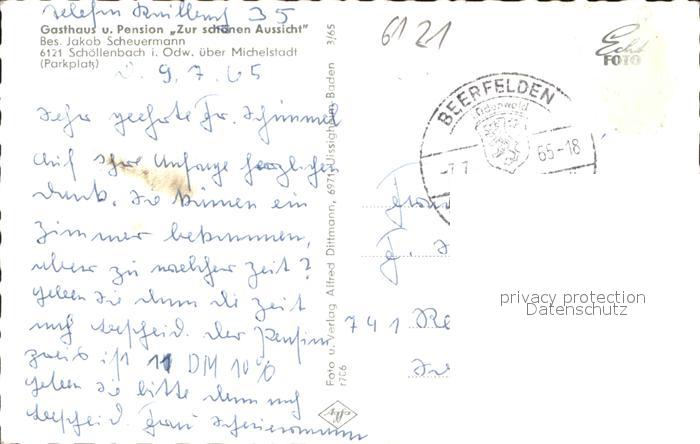 Telefon 35
Gasthaus u. Pension „Zur schönen Aussicht"
Bes. Jakob Scheuermann
6121 Schöllenbach i. Odw. über Michelstadt
(Parkplatz)
9.7.65
Sehr geehrte Fr. Schimmel
Auf Ihre Anfrage herzlichen
Dank. Sie können ein
Zimmer bekommen,
aber zu welcher Zeit?
geben Sie dann die Zeit
mich bescheid. Der Pension
preis ist 11 DM 10%
geben Sie bitte dann mich
bescheid. Frau Scheuermann
Foto u. Verlag Alfred Dittmann, 6971 Uissigheim/Baden 3/65
1706
Agfa
6121
Echt
FOTO
BEERFELDEN
Odenwald
65-18
Frau
741 Re
privacy protection
Datenschutz